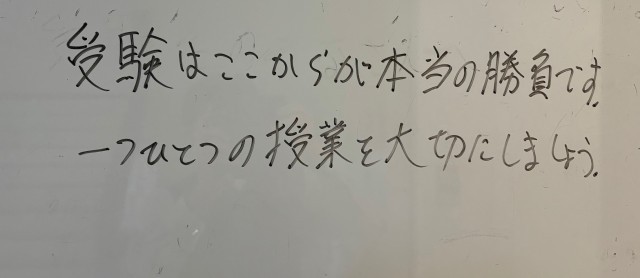 受験はここからが本当の勝負です.
一つひとつの授業を大切にしましょう.